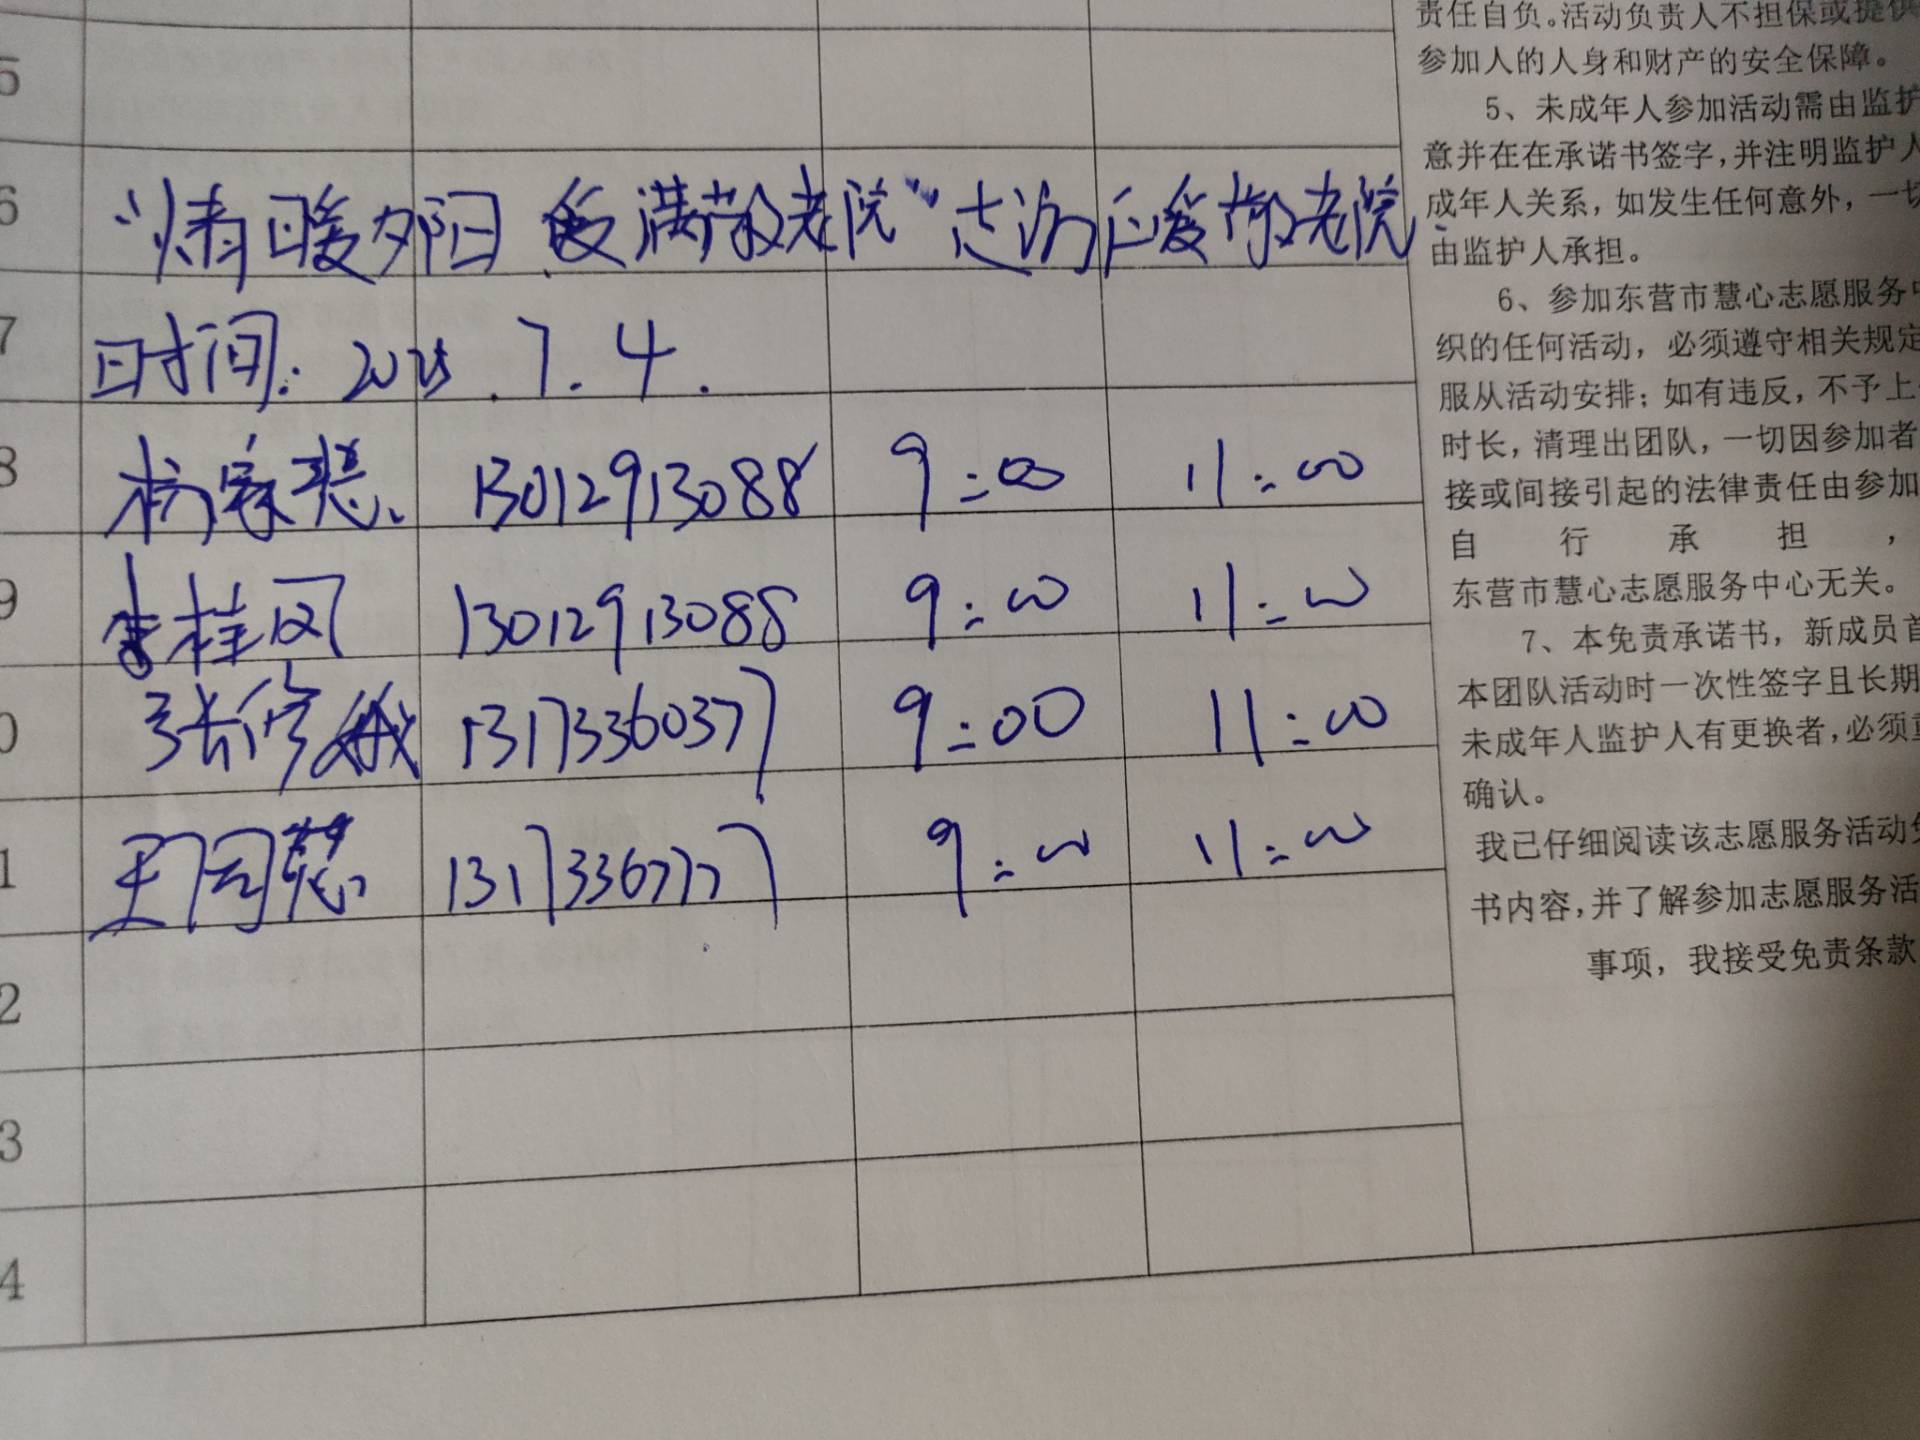 5
6 “情暖夕阳 爱满敬老院”走访仁爱敬老院
7 时间: 2025.7.4.
8 杨家慧 13012913088 9:00 11:00
9 李桂凤 13012913088 9:00 11:00
0 张修娥 13173360377 9:00 11:00
1 王同慧 9:00 11:00
2
3
4
责任自负。活动负责人不担保或提供
参加人的人身和财产的安全保障。
5、未成年人参加活动需由监护
意并在在承诺书签字,并注明监护人
成年人关系,如发生任何意外,一切
由监护人承担。
6、参加东营市慧心志愿服务中
织的任何活动,必须遵守相关规定
服从活动安排;如有违反,不予上
时长,清理出团队,一切因参加者
接或间接引起的法律责任由参加
自行承担,
东营市慧心志愿服务中心无关。
7、本免责承诺书,新成员首
本团队活动时一次性签字且长期
未成年人监护人有更换者,必须重
确认。
我已仔细阅读该志愿服务活动免
书内容,并了解参加志愿服务活
事项,我接受免责条款